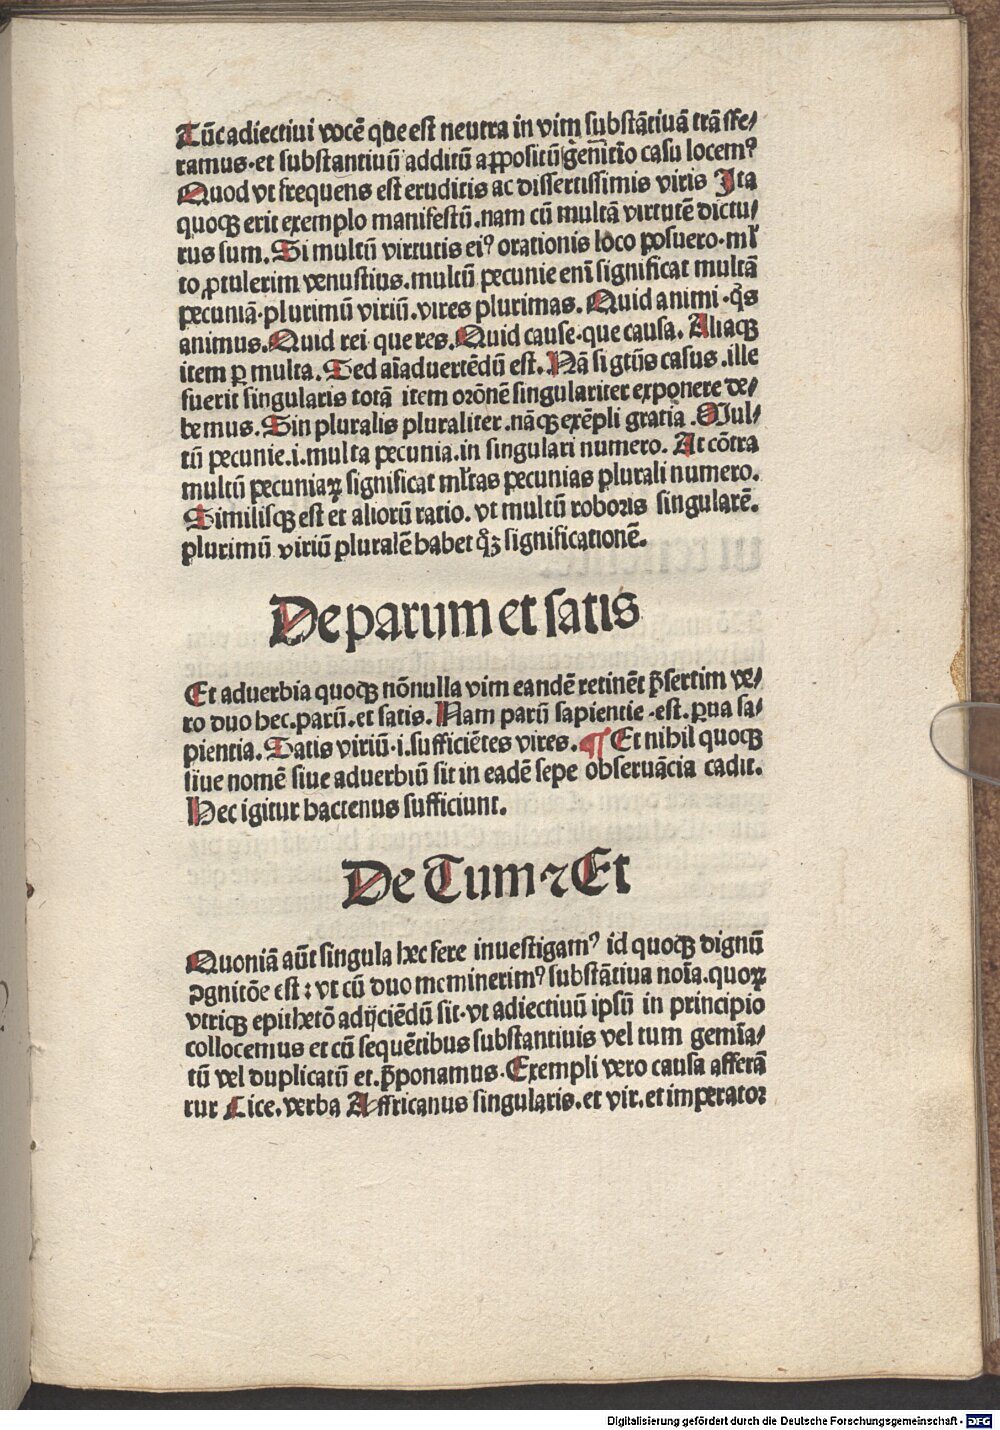 Tūc adiectiui vocē que est neutra in vim substātiuā trā sfe/
ramus·et substantiuū additū appositū genitīo casu locemꝰ
Quod vt frequens est eruditis ac dissertissimis viris Ita
quoqꝫ erit exemplo manifestū.nam cū multā virtutē dictu/
rus sum. Si multū virtutis eiꝰ orationis loco posuero·ml̄
to ꝓtulerim venustius.multū pecunie enī significat multā
pecuniā·plurimū viriū.vires plurimas. Quid animi ·qͥs
animus.Quid rei que res.Quid cause·que causa. Aliaqꝫ
item ꝑ multa. Sed aīaduertēdū est.Nā si gtūs casus .ille
fuerit singularis totā item orōnē singulariter exponere de/
bemus.Sin pluralis pluraliter.nāqꝫ exēpli gratia .Mul/
tū pecunie.i.multa pecunia.in singulari numero. At cōtra
multū pecuniaꝝ significat ml̄tas pecunias plurali numero.
Similisqꝫ est et aliorū ratio. vt multū roboris singularē.
plurimū viriū pluralē habet qͦꝫ significationē.
De parum et satis
Et aduerbia quoqꝫ nōnulla vim eandē retinēt p̄sertim ve/
ro duo hec.parū.et satis. Nam parū sapientie ·est.ꝑua sa/
pientia. Satis viriū·i.sufficiētes vires. ¶ Et nihil quoqꝫ
siue nomē siue aduerbiū sit in eadē sepe obseruācia cadit.
Hec igitur hactenus sufficiunt.
De Tum ⁊ Et
Quoniā aūt singula hec fere inuestigamꝰ id quoqꝫ dignū
ꝯgnitōe est : vt cū duo meminerimꝰ substātiua noīa.quoꝝ
vtriqꝫ epithetō adijciēdū sit·vt adiectiuū ipsū in principio
collocemus et cū sequētibus substantiuis vel tum gemīa/
tū vel duplicatū et.p̄ponamus·Exempli vero causa afferā
tur Cice.verba Affricanus singularis.et vir.et imperator
Digitalisierung gefördert durch die Deutsche Forschungsgemeinschaft - DFG